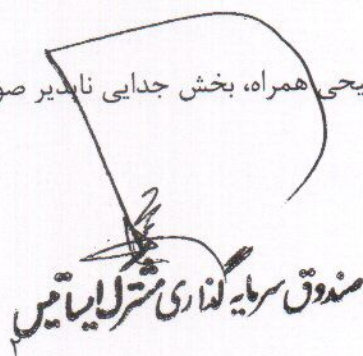 یحی همراه، بخش جدایی ناپذیر صو
صندوق سرمایه گذاری مشترک ایساتیس